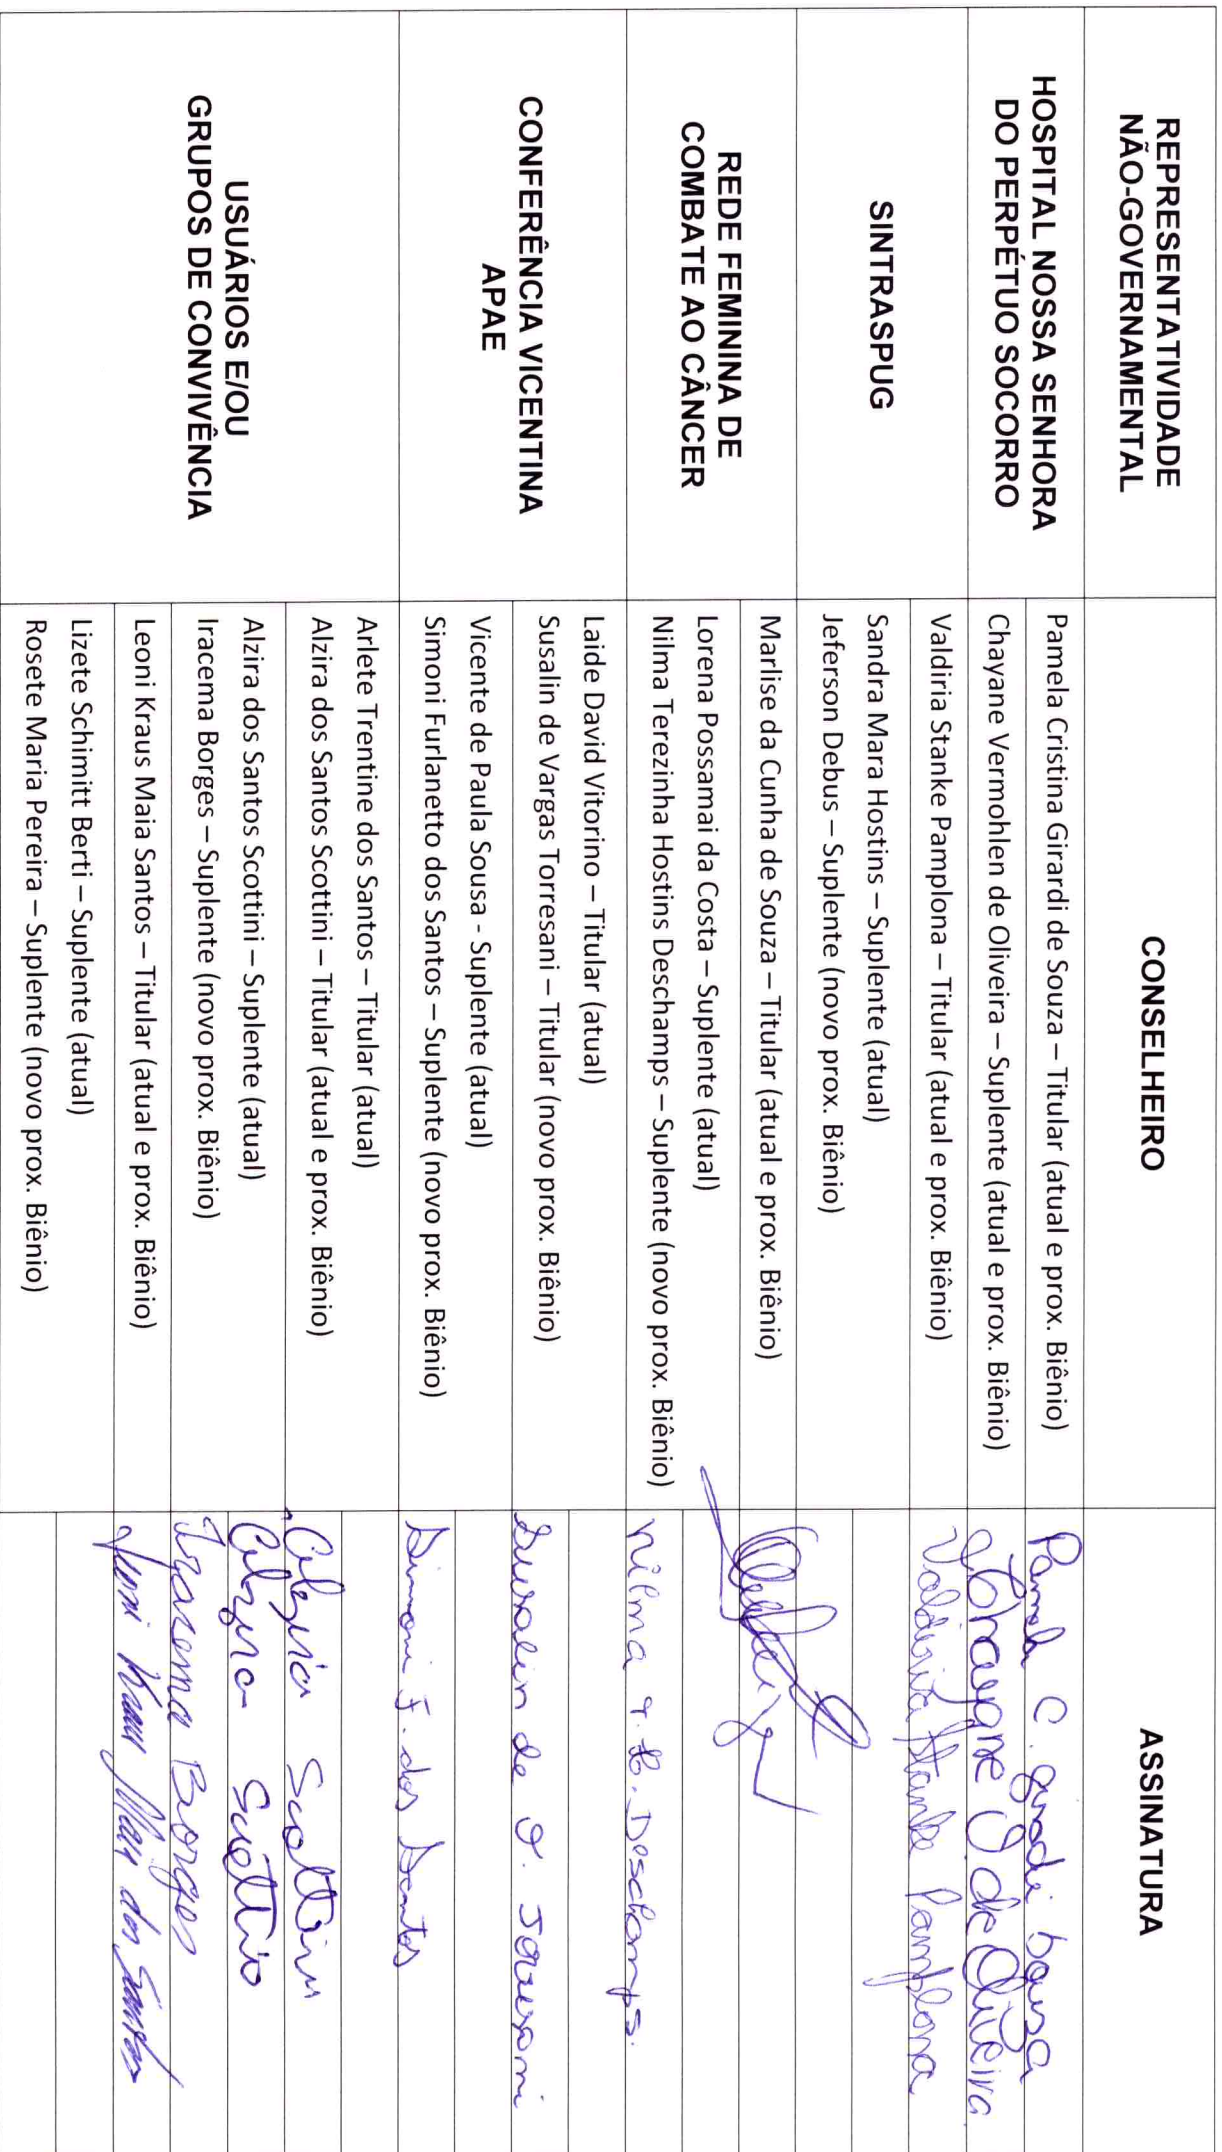 REPRESENTATIVIDADE
NÃO-GOVERNAMENTAL
CONSELHEIRO
ASSINATURA
HOSPITAL NOSSA SENHORA
DO PERPÉTUO SOCORRO
Pamela Cristina Girardi de Souza – Titular (atual e prox. Biênio)
Pamela C. Girardi Souza
Chayane Vermohlen de Oliveira – Suplente (atual e prox. Biênio)
Chayane V de Oliveira
SINTRASPUG
Valdiria Stanke Pamplona – Titular (atual e prox. Biênio)
Valdiria Stanke Pamplona
Sandra Mara Hostins – Suplente (atual)
Jeferson Debus – Suplente (novo prox. Biênio)
REDE FEMININA DE
COMBATE AO CÂNCER
Marlise da Cunha de Souza – Titular (atual e prox. Biênio)
Lorena Possamai da Costa – Suplente (atual)
Nilma Terezinha Hostins Deschamps – Suplente (novo prox. Biênio)
Nilma T. H. Deschamps.
CONFERÊNCIA VICENTINA
APAE
Laide David Vitorino – Titular (atual)
Susalin de Vargas Torresani – Titular (novo prox. Biênio)
Susalin de V. Torresani
Vicente de Paula Sousa - Suplente (atual)
Simoni Furlanetto dos Santos – Suplente (novo prox. Biênio)
Simoni F. dos Santos
USUÁRIOS E/OU
GRUPOS DE CONVIVÊNCIA
Arlete Trentine dos Santos – Titular (atual)
Alzira dos Santos Scottini – Titular (atual e prox. Biênio)
Alzira Scottini
Alzira dos Santos Scottini – Suplente (atual)
Alzira
Iracema Borges – Suplente (novo prox. Biênio)
Iracema Borges
Leoni Kraus Maia Santos – Titular (atual e prox. Biênio)
Leoni Kraus Maia dos Santos
Lizete Schimitt Berti – Suplente (atual)
Rosete Maria Pereira – Suplente (novo prox. Biênio)